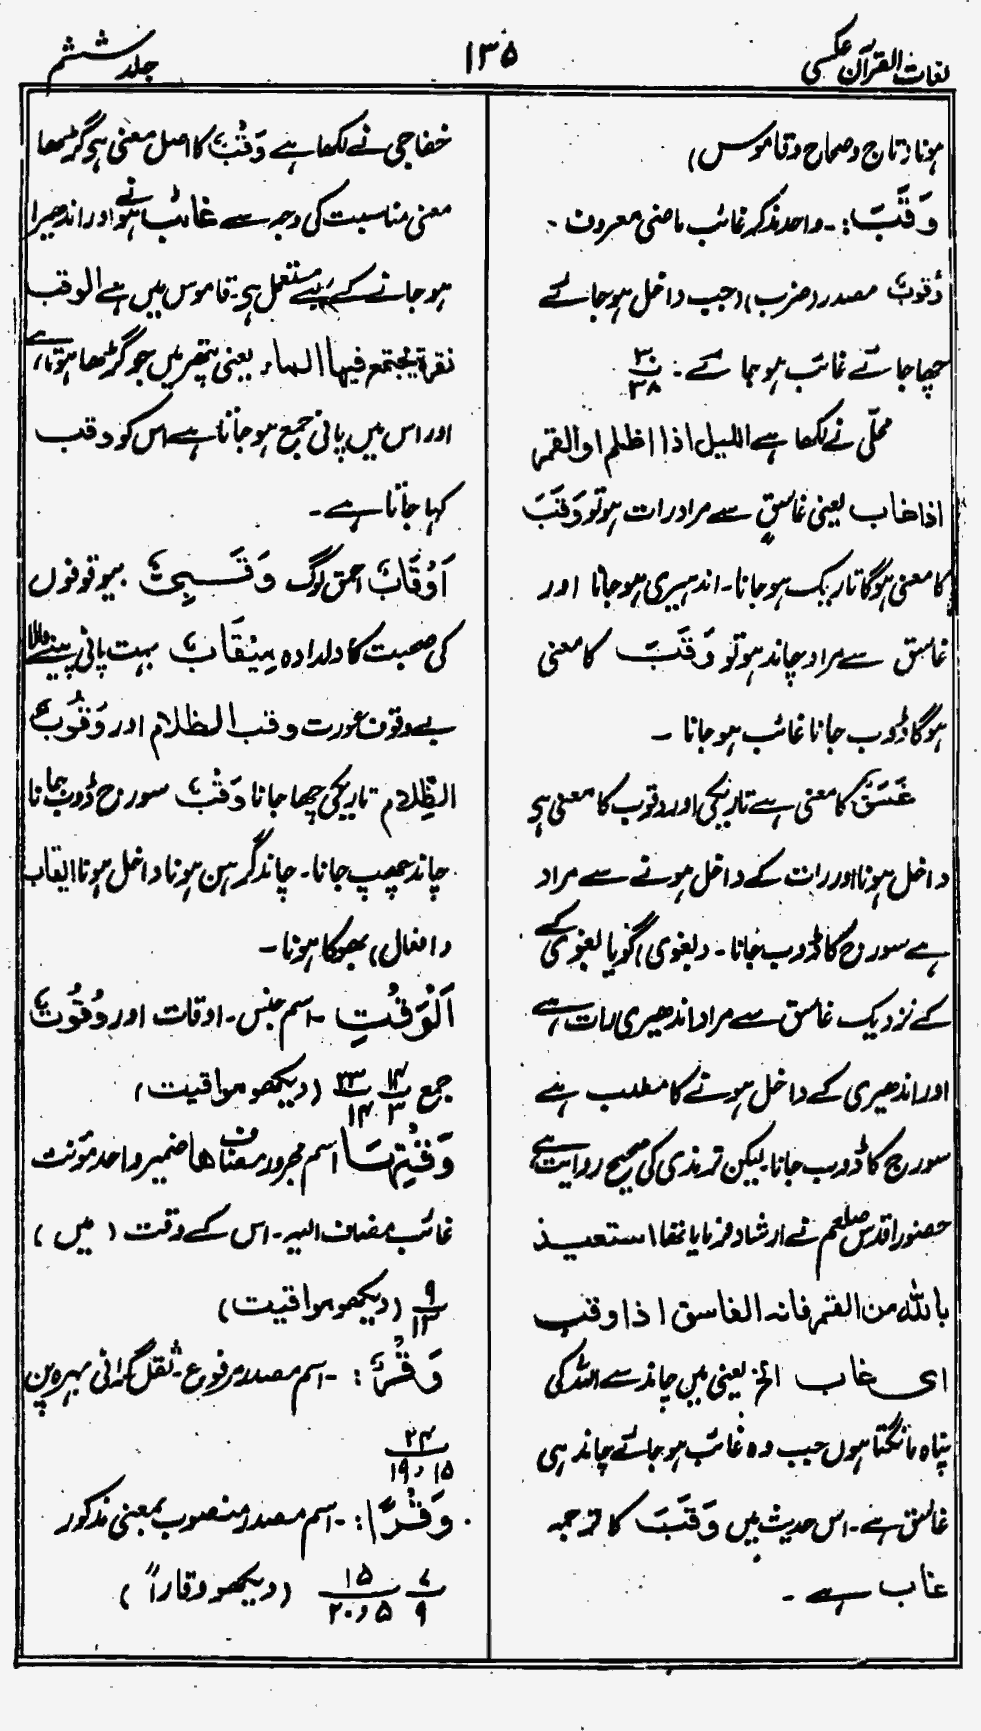 لغات القرآن عکسی
۱۳۵
جلد ششم
ہونا (تاج و صحاح و قاموس)
وَقَبَ:۔ واحد مذکر غائب ماضی معروف ۔
وُقُوبٌ مصدر (ضرب) (جب داخل ہو جائے
چھا جائے غائب ہو جائے ۔ ۳۰ / ۳۸
محلّی نے لکھا ہے اللیل اذا اظلم او القمر
اذا غاب یعنی غاسقٍ سے مراد رات ہو تو وَقَبَ
کا معنی ہو گا تاریک ہو جانا۔ اندھیری ہو جانا اور
غاسق سے مراد چاند ہو تو وَقَبَ کا معنی
ہو گا ڈوب جانا غائب ہو جانا ۔
غَسَق کا معنی ہے تاریکی اور وقوب کا معنی ہے
داخل ہونا اور رات کے داخل ہونے سے مراد
ہے سورج کا ڈوب جانا ۔ (بغوی) گویا بغوی کے
کے نزدیک غاسق سے مراد اندھیری رات ہے
اور اندھیری کے داخل ہونے کا مطلب ہے
سورج کا ڈوب جانا لیکن ترمذی کی صحیح روایت ہے
حضور اقدس صلعم نے ارشاد فرمایا تھا استعیذ
باللہ من القمر فانہ الغاسق اذا وقب
ای غاب الخ یعنی میں چاند سے اللہ کی
پناہ مانگتا ہوں جب وہ غائب ہو جائے چاند ہی
غاسق ہے ۔ اس حدیث میں وَقَبَ کا ترجمہ
غاب ہے ۔
خفاجی نے لکھا ہے وَقْبٌ کا اصل معنی ہے گڑھا
معنی مناسبت کی وجہ سے غائب ہونے اور اندھیرا
ہو جانے کے لیے مستعمل ہے۔ قاموس میں ہے الوقب
نقرۃ یجتمع فیہا الماء یعنی پتھر میں جو گڑھا ہوتا ہے
اور اس میں پانی جمع ہو جاتا ہے اس کو وقب
کہا جاتا ہے ۔
اَوْقَابٌ احمق لوگ وَقَبِیٌّ بیوقوفوں
کی صحبت کا دلدادہ مِیْقَابٌ بہت پانی پینے والا
بے وقوف عورت وقب الظلام اور وُقُوبُ
الظِّلام تاریکی چھا جانا وَقْبٌ سورج ڈوب جانا
چاند چھپ جانا ۔ چاند گرہن ہونا داخل ہونا ایقاب
(افعال) بھوکا ہونا ۔
اَلْوَقْتِ ۔ اسم جنس ۔ اوقات اور وُقُوتٌ
جمع ۱۴ / ۳ ۲۳ / ۱۴ (دیکھو مواقیت)
وَقْتِهَا اسم مجرور مضاف ھا ضمیر واحد مؤنث
غائب مضاف الیہ ۔ اس کے وقت (میں)
۹ / ۱۳ (دیکھو مواقیت)
وَقْرٌ :۔ اسم مصدر مرفوع ۔ ثقل گرانی بہرہ پن
۲۴ / ۱۵ و ۱۹
وَقْرًا :۔ اسم مصدر منصوب بمعنی مذکور
۷ / ۹ ۱۵ / ۵ و ۲۰ (دیکھو وقاراً)